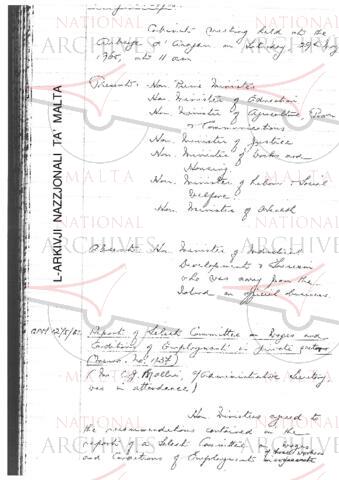 Cabinet meeting held at the
Auberge d'Aragon on Saturday, 29th May
1965, at 11 a.m.
Present: Hon. Prime Minister
Hon. Minister of Education
Hon. Minister of Agriculture, Power
& Communications
Hon. Minister of Justice
Hon. Minister of Works and
Housing
Hon. Minister of Labour & Social
Welfare
Hon. Minister of Health
Absent: Hon. Minister of Industrial
Development & Tourism
who was away from the
Island on official business.
Report of Select Committee on Wages and
Conditions of Employment in private sector
(Memo. No. 1237)
(Mr. C.J. Mallia, Administrative Secretary
was in attendance)
Hon Ministers agreed to
the recommendations contained in the
report of a Select Committee on Wages
and Conditions of Employment
of hotel workers
L-ARKIVJI NAZZJONALI TA' MALTA
NATIONAL
ARCHIVES
MALTA